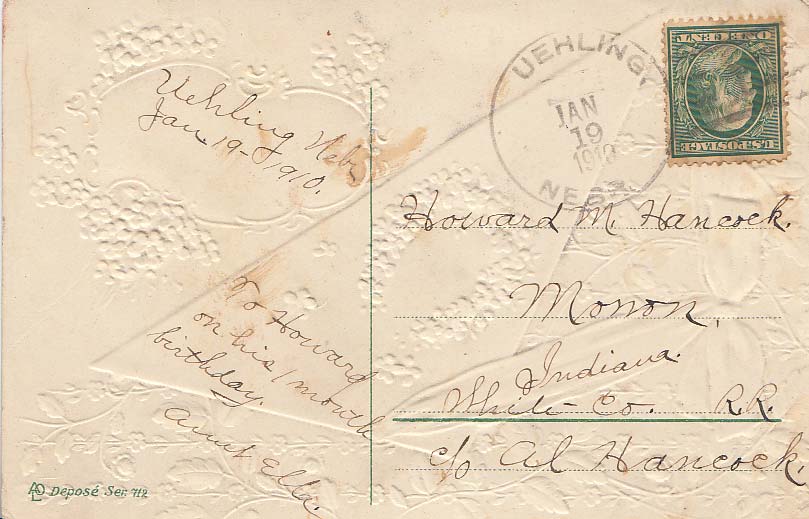 Uehling Neb
Jan-19-1910.
To Howard
on his 1 month
birthday.
Aunt Ella.
Deposé Ser. 712
UEHLING,
JAN
19
1910
NEBR.
U.S. POSTAGE
ONE CENT
Howard M. Hancock.
Monon,
Indiana.
White Co. R.R.
c/o Al Hancock.